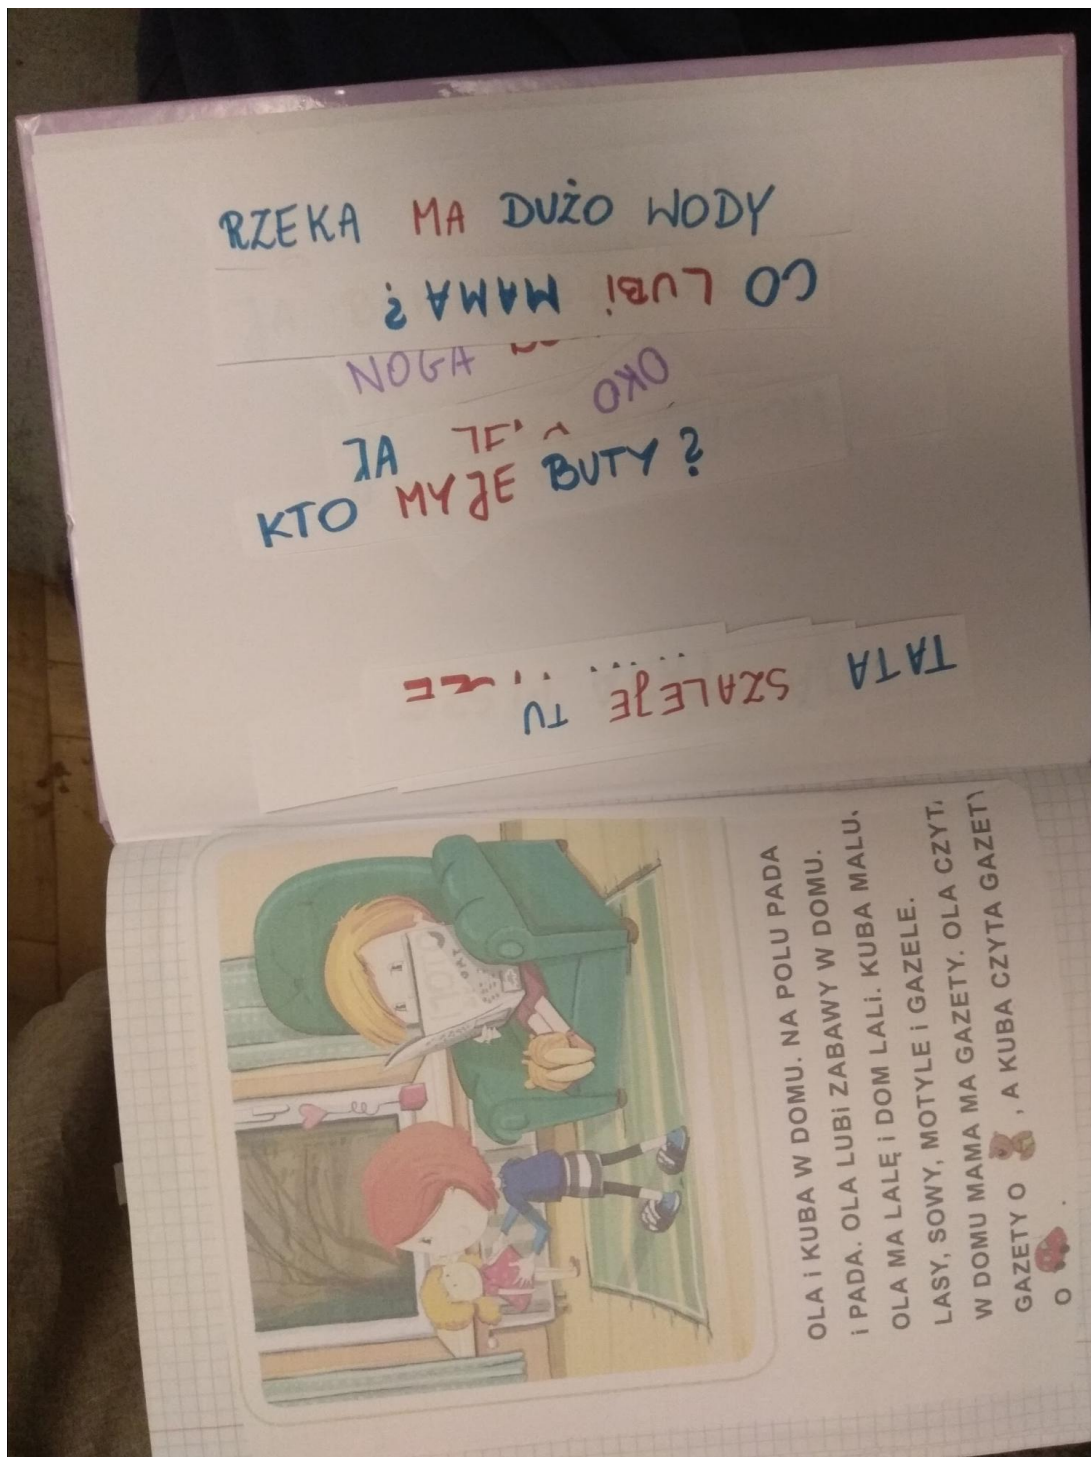 RZEKA MA DUŻO WODY
CO LUBi MAMA?
NOGA
OKO
JA
KTO MYJE BUTY?
TATA SZALEJE TU
OLA i KUBA W DOMU. NA POLU PADA
i PADA. OLA LUBi ZABAWY W DOMU.
OLA MA LALĘ i DOM LALi. KUBA MALU
LASY, SOWY, MOTYLE i GAZELE.
W DOMU MAMA MA GAZETY. OLA CZYT
GAZETY O , A KUBA CZYTA GAZETY
O .